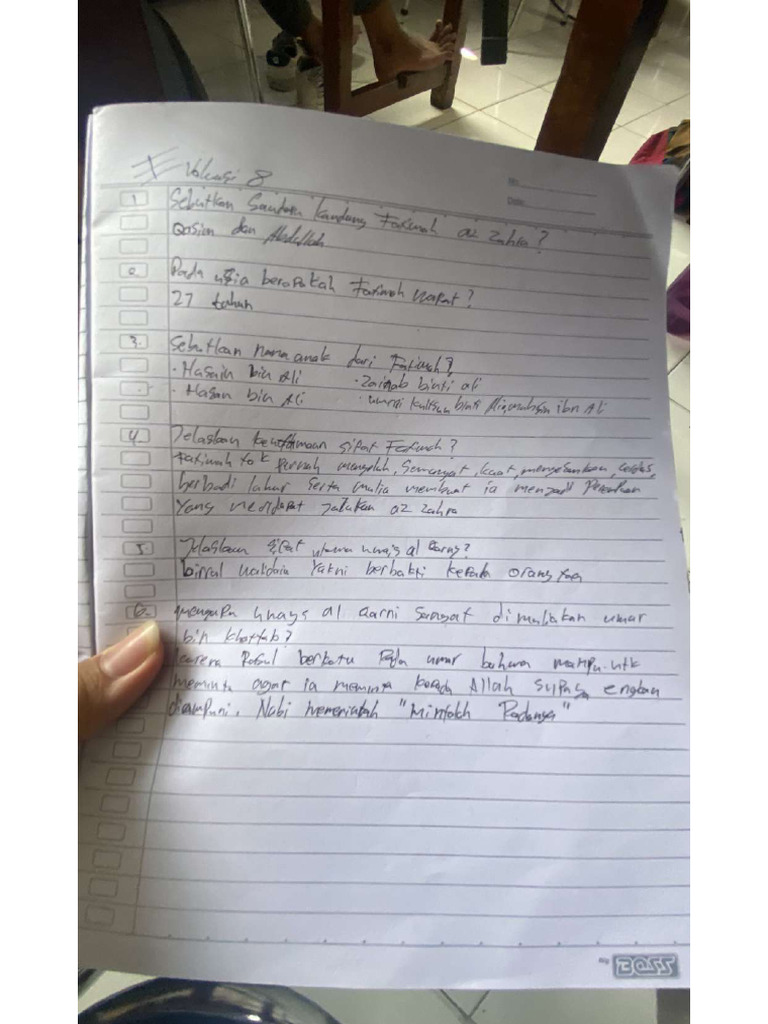 Evaluasi 8
No.
Date
1 Sebutkan Saudara kandung Fatimah az Zahra?
Qasim dan Abdullah
2 Pada usia berapakah Fatimah wafat?
27 tahun
3. Sebutkan nama anak dari Fatimah?
• Hasain bin Ali • Zainab binti ali
• Hasan bin Ali • ummi kultsum binti ibn Ali
4. Jelaskan keutamaan sifat Fatimah?
Fatimah tak pernah mengeluh, Semangat, kuat, cerdas,
berbudi luhur serta mulia membuat ia menjadi Perempuan
Yang mendapat Julukan az Zahra
5. Jelaskan sifat utama uwais al Qarny?
birral walidain Yakni berbakti kepada orang tua
6. mengapa Uways al Qarni Sangat dimuliakan umar
bin khattab?
karena Rasul berkata Pada umar bahwa mampu utk
meminta agar ia meminta kepada Allah Supaya engkau
diampuni. Nabi memerintah "Mintalah Padanya"
BOSS